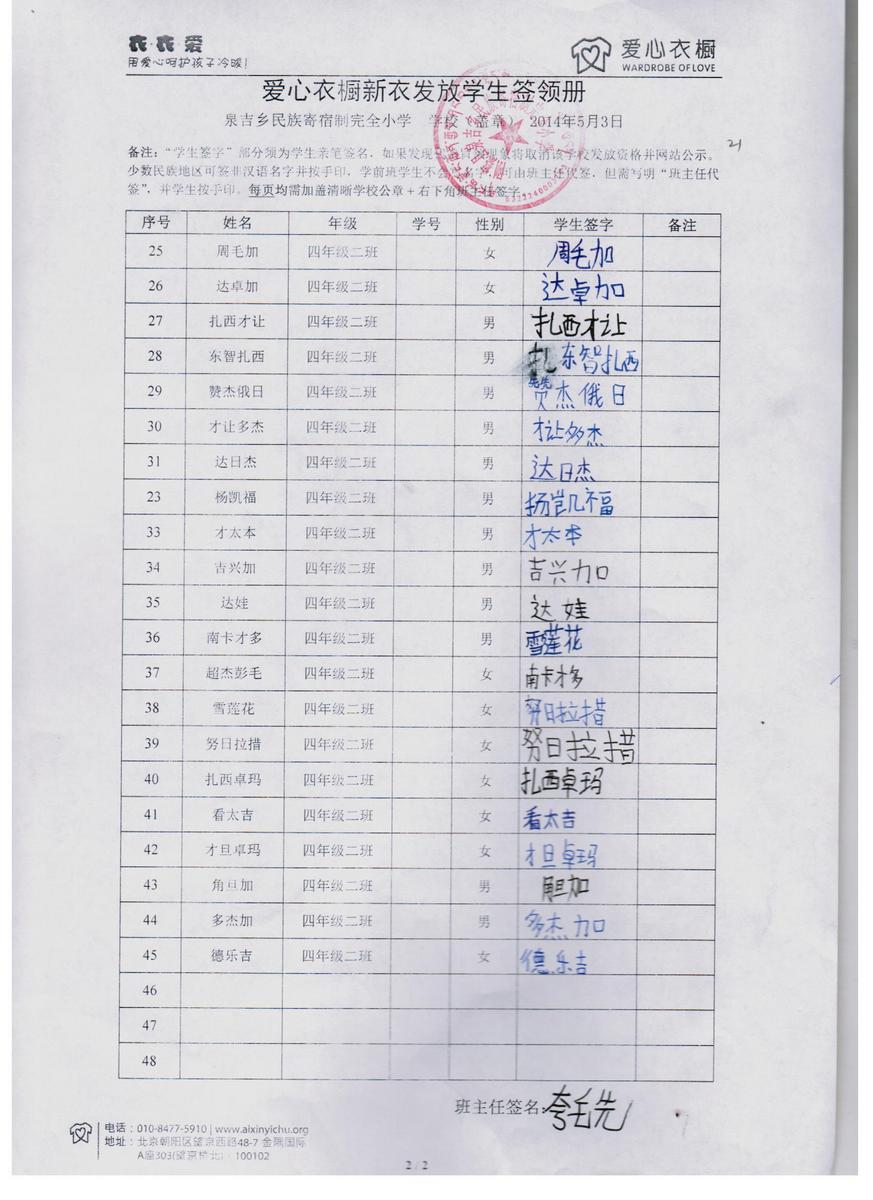 衣·衣·爱
用爱心呵护孩子冷暖!
爱心衣橱
WARDROBE OF LOVE
爱心衣橱新衣发放学生签领册
泉吉乡民族寄宿制完全小学 学校（盖章） 2014年5月3日
21
备注：“学生签字”部分须为学生亲笔签名，如果发现 现象将取消该学校发放资格并网站公示。
少数民族地区可签非汉语名字并按手印。学前班学生不会 名字，可由班主任代签，但需写明“班主任代
签”，并学生按手印。每页均需加盖清晰学校公章+右下角班主任签字。
序号 姓名 年级 学号 性别 学生签字 备注
25 周毛加 四年级二班 女 周毛加
26 达卓加 四年级二班 女 达卓加
27 扎西才让 四年级二班 男 扎西才让
28 东智扎西 四年级二班 男 东智扎西
29 赞杰俄日 四年级二班 男 赞杰俄日
30 才让多杰 四年级二班 男 才让多杰
31 达日杰 四年级二班 男 达日杰
23 杨凯福 四年级二班 男 扬凯福
33 才太本 四年级二班 男 才太本
34 吉兴加 四年级二班 男 吉兴加
35 达娃 四年级二班 男 达娃
36 南卡才多 四年级二班 男 雪莲花
37 超杰彭毛 四年级二班 女 南卡才多
38 雪莲花 四年级二班 女 努日拉措
39 努日拉措 四年级二班 女 努日拉措
40 扎西卓玛 四年级二班 女 扎西卓玛
41 看太吉 四年级二班 女 看太吉
42 才旦卓玛 四年级二班 女 才旦卓玛
43 角旦加 四年级二班 男 角旦加
44 多杰加 四年级二班 男 多杰加
45 德乐吉 四年级二班 女 德乐吉
46
47
48
班主任签名: 夸毛先
电话：010-8477-5910 | www.aixinyichu.org
地址：北京朝阳区望京西路48-7 金隅国际
A座303(望京桥北)·100102
2 / 2